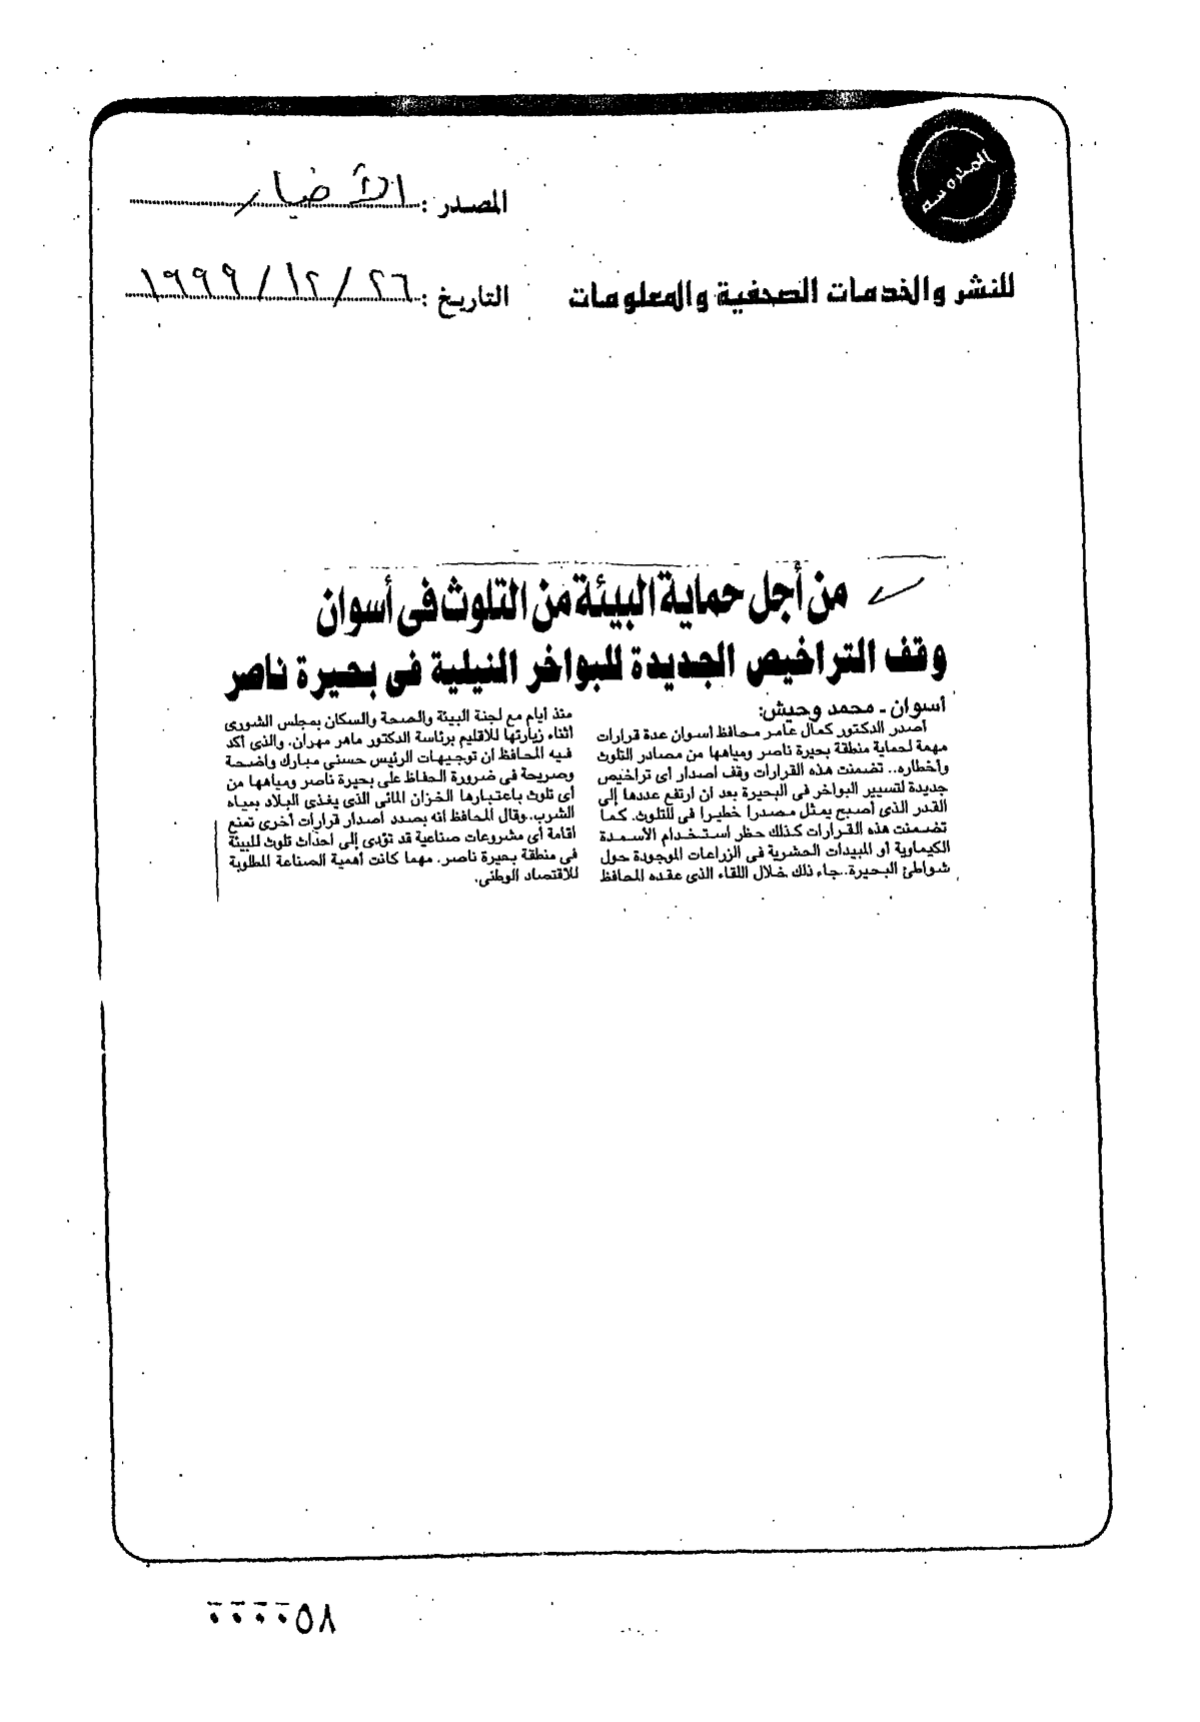 المصدر : الأخبار
للنشر والخدمات الصحفية والمعلومات
التاريخ : ٢٦ / ١٢ / ١٩٩٩
من أجل حماية البيئة من التلوث فى أسوان
وقف التراخيص الجديدة للبواخر النيلية فى بحيرة ناصر
أسوان - محمد وحيش:
أصدر الدكتور كمال عامر محافظ أسوان عدة قرارات
مهمة لحماية منطقة بحيرة ناصر ومياهها من مصادر التلوث
وأخطاره.. تضمنت هذه القرارات وقف اصدار أى تراخيص
جديدة لتسيير البواخر فى البحيرة بعد ان ارتفع عددها إلى
القدر الذى أصبح يمثل مصدرا خطيرا فى للتلوث. كما
تضمنت هذه القرارات كذلك حظر استخدام الأسمدة
الكيماوية أو المبيدات الحشرية فى الزراعات الموجودة حول
شواطئ البحيرة..جاء ذلك خلال اللقاء الذى عقده المحافظ
منذ أيام مع لجنة البيئة والصحة والسكان بمجلس الشورى
اثناء زيارتها للاقليم برئاسة الدكتور ماهر مهران. والذى أكد
فيه المحافظ ان توجيهات الرئيس حسنى مبارك واضحة
وصريحة فى ضرورة الحفاظ على بحيرة ناصر ومياهها من
أى تلوث باعتبارها الخزان المائى الذى يغذى البلاد بمياه
الشرب..وقال المحافظ انه بصدد اصدار قرارات أخرى تمنع
اقامة أى مشروعات صناعية قد تؤدى إلى احداث تلوث للبيئة
فى منطقة بحيرة ناصر. مهما كانت أهمية الصناعة المطلوبة
للاقتصاد الوطنى.
٠٠٠٠٥٨